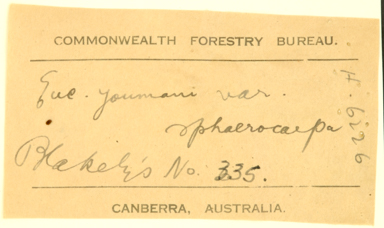 COMMONWEALTH FORESTRY BUREAU.
Euc. youmani var.
sphaerocarpa
Blakely's No. 335.
CANBERRA, AUSTRALIA.